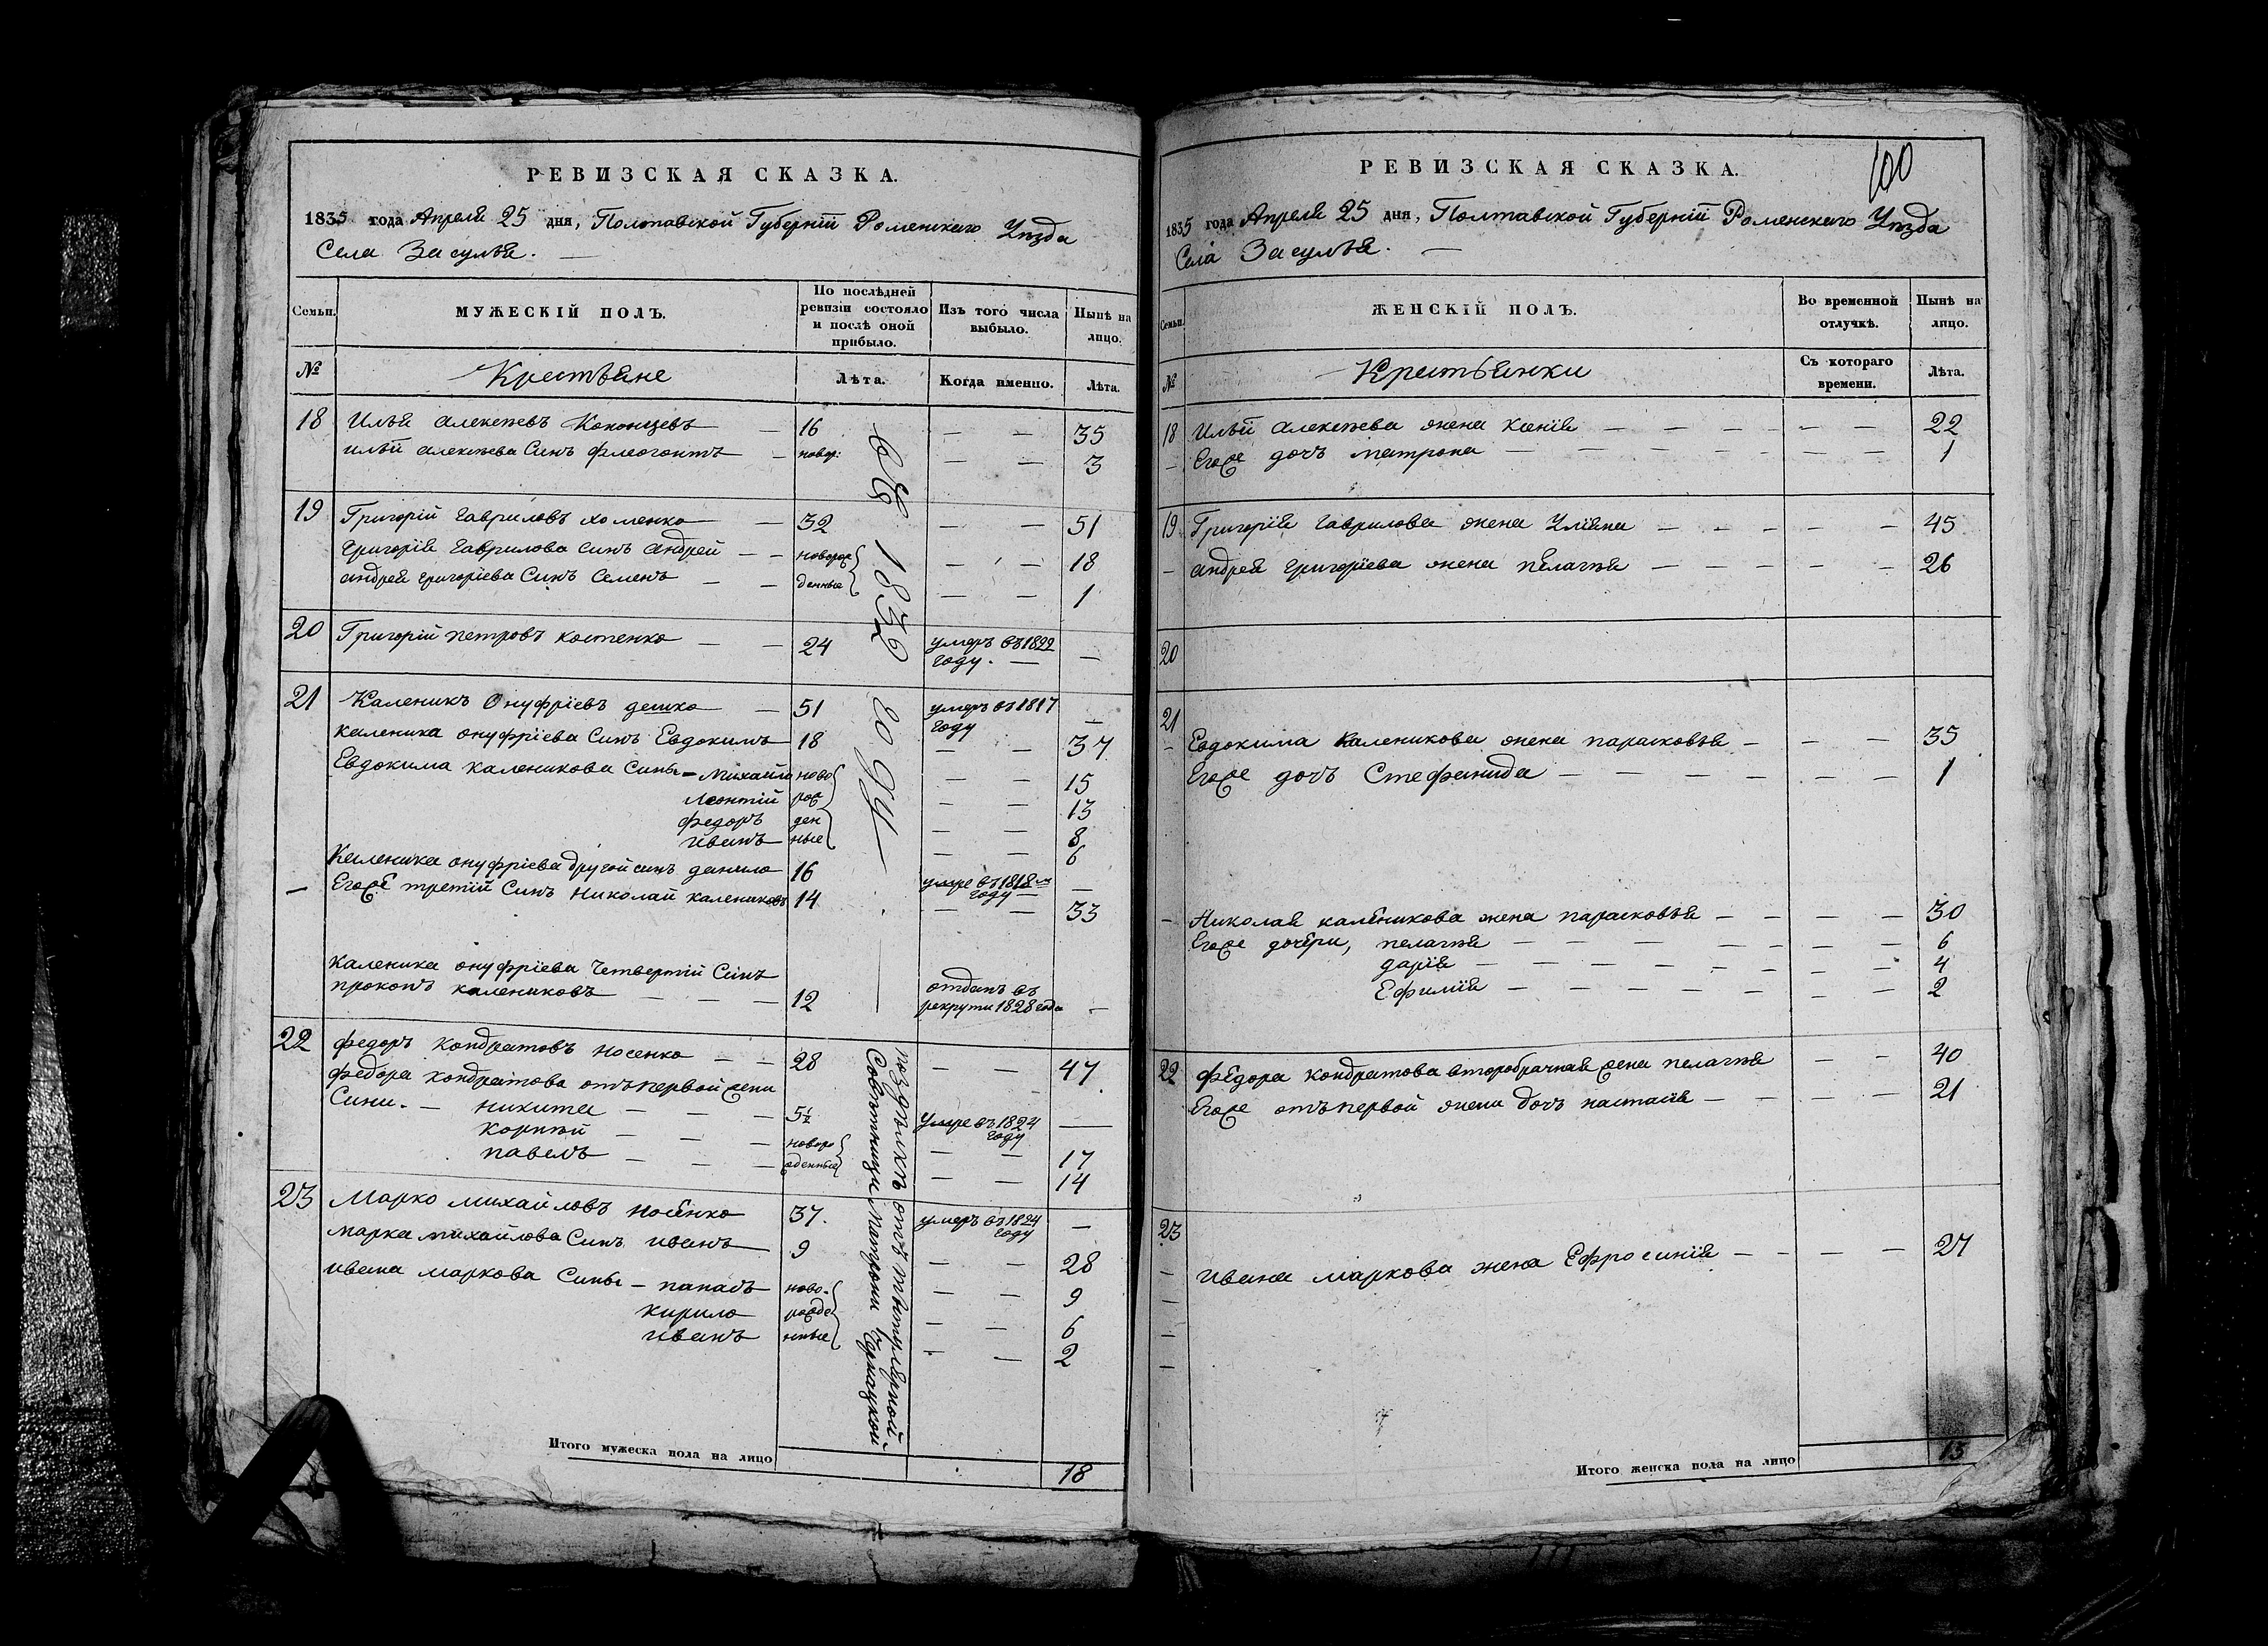 РЕВИЗСКАЯ СКАЗКА.
1835 года Апреля 25 дня, Полтавской Губерніи Роменскаго Уѣзда
Села Засулья.
Семьи.
МУЖЕСКІЙ ПОЛЪ.
По послѣдней ревизіи состояло и послѣ оной прибыло.
Изъ того числа выбыло.
Нынѣ на лицо.
№
Крестьяне
Лѣта.
Когда именно.
Лѣта.
18 Илья Алексѣевъ — 16 — — 35
Ильи Алексѣева Синъ — новор: — — 3
19 Григорій Гавриловъ Хоменко — 32 — — 51
Григорія Гаврилова синъ Андрей — — новорож — — 18
Андрея Григоріева Синъ Семенъ — — денные — — 1
20 Григорій Петровъ Костенко — — 24 умеръ въ 1822 году. — —
21 Каленикъ Онуфріевъ дешко — 51 умеръ въ 1817 году —
Каленика Онуфріева Синъ Евдокимъ 18 — — 37
Евдокима Каленикова Сины — Михайло ново — — 15
Леонтій рож — — 13
Федоръ ден — — 8
Иванъ ные — — 6
Каленика Онуфріева другой синъ данило 16 умре въ 1818м году —
— Егоже третій Синъ Николай Калениковъ 14 — — 33
Каленика Онуфріева Четвертій Синъ
Прокопъ Калениковъ — — — 12 отданъ въ рекрути 1828 года —
22 Федоръ Кондратовъ Носенко — — 28 — — 47
Федора Кондратова отъ первой жени
Сини. — Никита — — — 5½ Умре въ 1824 году —
Корнѣй — — — новоро — — 17
Павелъ — — — жденные — — 14
23 Марко Михайловъ Носенко 37. умеръ въ 1824 году —
Марка Михайлова Синъ Иванъ 9 — — 28
Ивана Маркова Сины — Панасъ ново- — — 9
Кирило рожде — — 6
Иванъ нные — — 2
въ 1832 году
по раздѣлкѣ отъ титулярной
Совѣтници Матрони
Итого мужеска пола на лицо
18
100
РЕВИЗСКАЯ СКАЗКА.
1835 года Апреля 25 дня, Полтавской Губерніи Роменскаго Уѣзда
Села Засулья.
Семьи.
ЖЕНСКІЙ ПОЛЪ.
Во временной отлучкѣ.
Нынѣ на лицо.
№
Крестьянки
Съ котораго времени.
Лѣта.
18 Ильи Алексѣева жена Ксенія — — — — — — 22
— Егоже дочъ Матрона — — — — — — 1
19 Григорія Гаврилова жена Уліяна — — — — — 45
— Андрея Григоріева жена Пелагѣя — — — — — 26
20
21
— Евдокима Каленикова жена Парасковѣя — — — 35
Егоже дочъ Стефанида — — — — — — — 1
— Николая Каленикова жена Парасковѣя — — — — 30
Егоже дочери, Пелагѣя — — — — — — 6
Дарія — — — — — — — 4
Ефимія — — — — — — — 2
22 Федора Кондратова второбрачная жена Пелагѣя — — 40
Егоже отъ первой жени дочъ Настасія — — — — 21
23
— Ивана Маркова жена Ефросинія — — — — 27
—
—
—
Итого женска пола на лицо
13